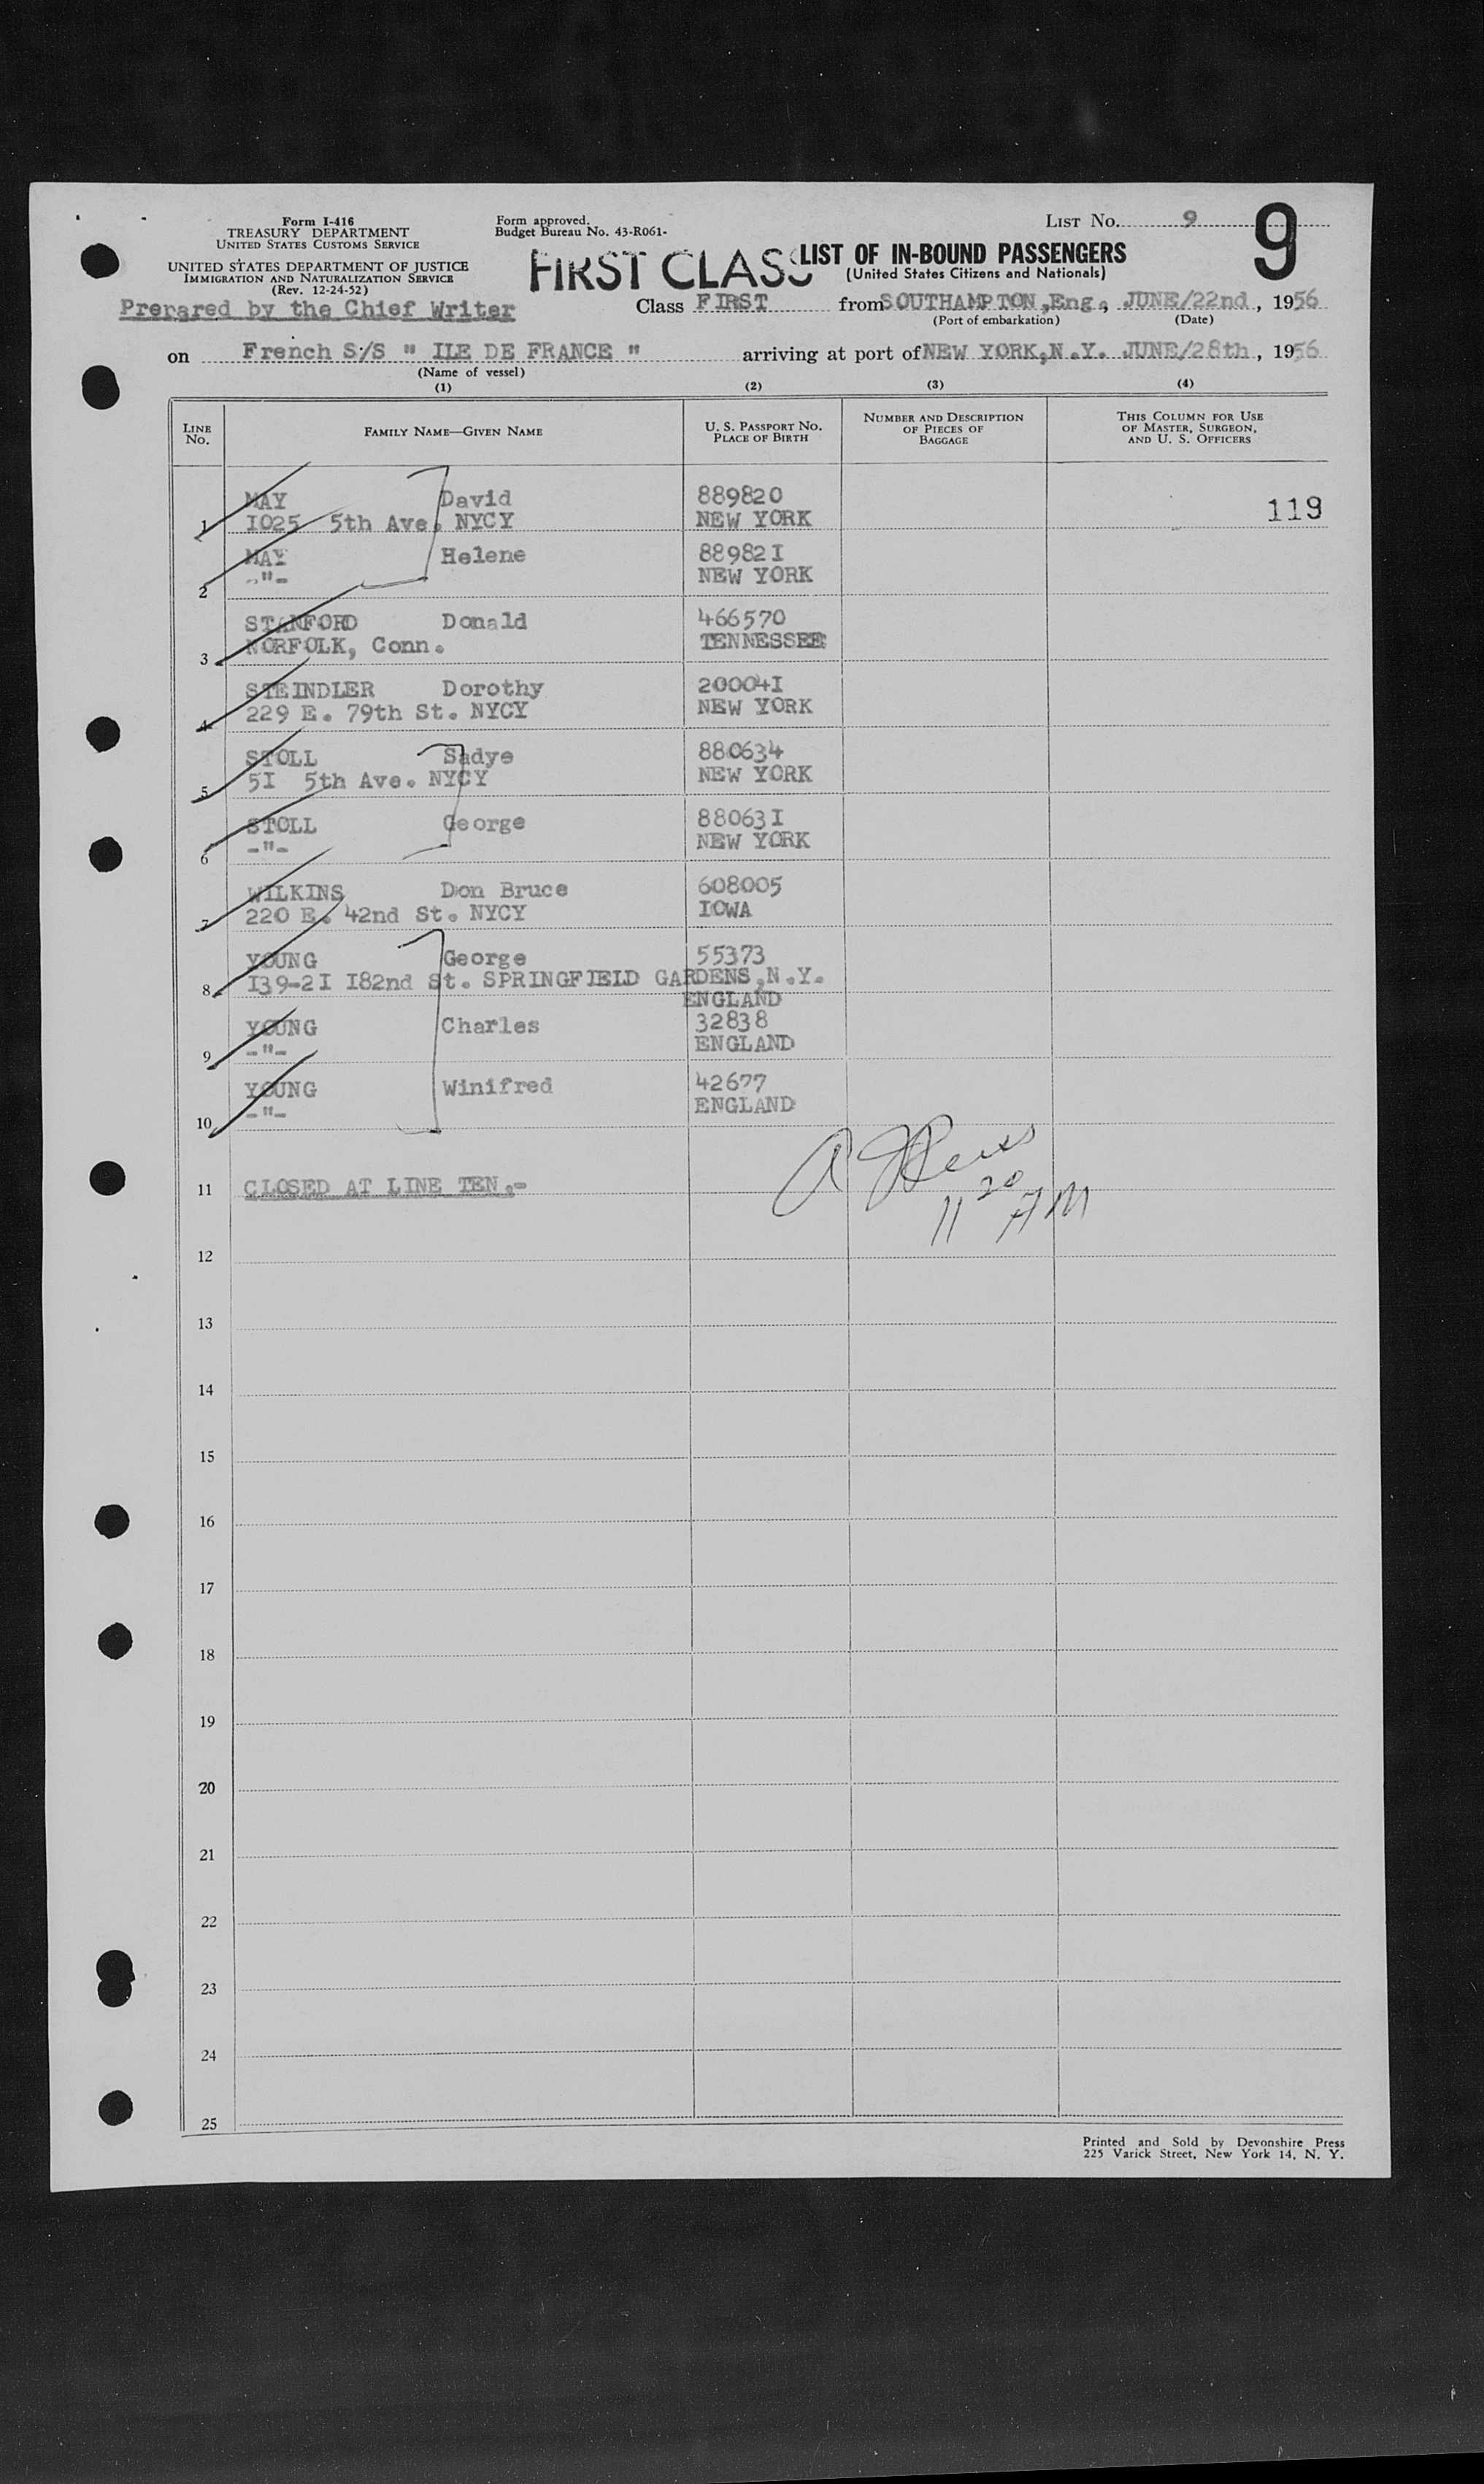 Form I-416
TREASURY DEPARTMENT
UNITED STATES CUSTOMS SERVICE
UNITED STATES DEPARTMENT OF JUSTICE
IMMIGRATION AND NATURALIZATION SERVICE
(Rev. 12-24-52)
Prerared by the Chief Writer
Form approved.
Budget Bureau No. 43-R061-
LIST No. 9
9
FIRST CLASS
LIST OF IN-BOUND PASSENGERS
(United States Citizens and Nationals)
Class FIRST from SOUTHAMPTON,Eng., JUNE/22nd, 1956
(Port of embarkation) (Date)
on French S/S " ILE DE FRANCE " arriving at port of NEW YORK,N.Y. JUNE/28th, 1956
(Name of vessel)
(1) (2) (3) (4)
LINE No. FAMILY NAME—GIVEN NAME U. S. PASSPORT NO. PLACE OF BIRTH NUMBER AND DESCRIPTION OF PIECES OF BAGGAGE THIS COLUMN FOR USE OF MASTER, SURGEON, AND U. S. OFFICERS
MAY David 889820
1 I025 5th Ave. NYCY NEW YORK 119
MAY Helene 88982I
2 -"- NEW YORK
STANFORD Donald 466570
3 NORFOLK, Conn. TENNESSEE
STEINDLER Dorothy 20004I
4 229 E. 79th St. NYCY NEW YORK
STOLL Sadye 880634
5 5I 5th Ave. NYCY NEW YORK
STOLL George 88063I
6 -"- NEW YORK
WILKINS Don Bruce 608005
7 220 E. 42nd St. NYCY IOWA
YOUNG George 55373
8 I39-2I I82nd St. SPRINGFIELD GARDENS,N.Y.
ENGLAND
YOUNG Charles 32838
9 -"- ENGLAND
YOUNG Winifred 42677
10 -"- ENGLAND
11 CLOSED AT LINE TEN.-
11 20 AM
12
13
14
15
16
17
18
19
20
21
22
23
24
25
Printed and Sold by Devonshire Press
225 Varick Street, New York 14, N. Y.